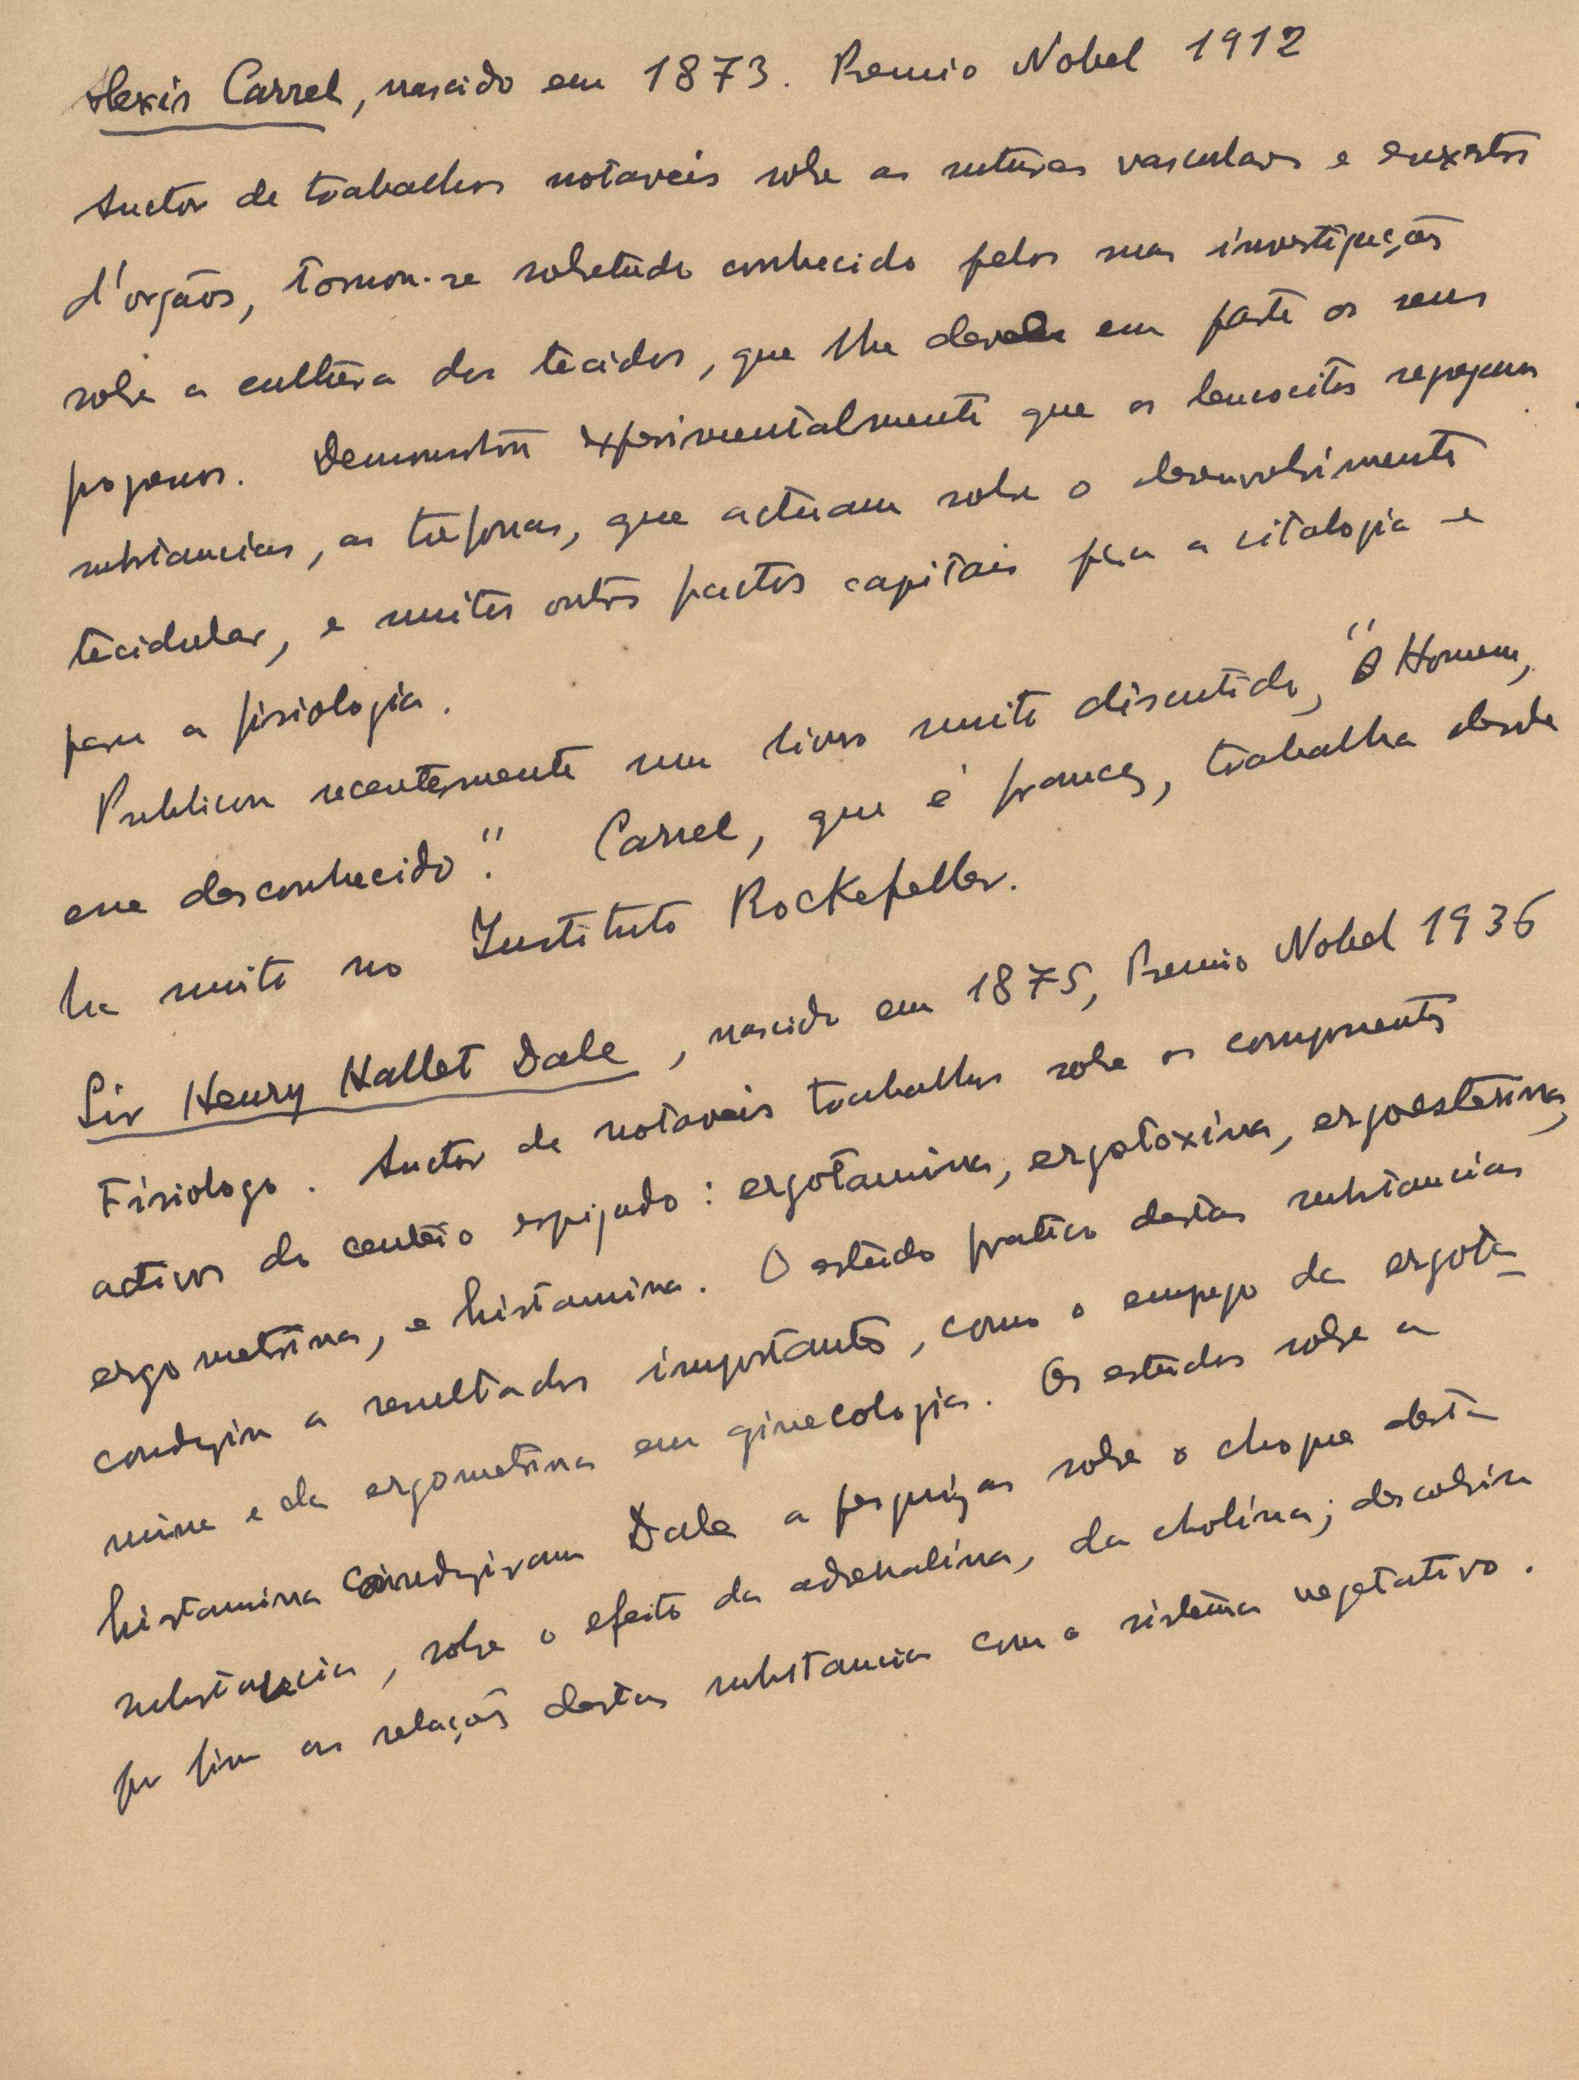 Alexis Carrel, nascido em 1873. Premio Nobel 1912
Auctor de trabalhos notaveis sobre as suturas vasculares e enxertos
d'orgãos, tornou-se sobretudo conhecido pelas suas investigações
sobre a cultura dos tecidos, que lhe devem em parte os seus
progressos. Demonstrou experimentalmente que os leucocitos segregam
substancias, as trefonas, que actuam sobre o desenvolvimento
tecidular, e muitos outros factos capitais para a citologia e
para a fisiologia.
Publicou recentemente um livro muito discutido, "O Homem,
esse desconhecido". Carrel, que é francez, trabalha desde
ha muito no Instituto Rockefeller.
Sir Henry Hallet Dale, nascido em 1875, Premio Nobel 1936
Fisiologo. Auctor de notaveis trabalhos sobre os componentes
activos do centeio espigado: ergotamina, ergotoxina, ergoesterina,
ergometrina, e histamina. O estudo pratico destas substancias
conduziu a resultados importantes, como o emprego da ergota-
mina e da ergometrina em ginecologia. Os estudos sobre a
histamina conduziram Dale a pesquizas sobre o choque desta
substancia, sobre o efeito da adrenalina, da cholina; descobriu
por fim as relações destas substancias com o sistema vegetativo.